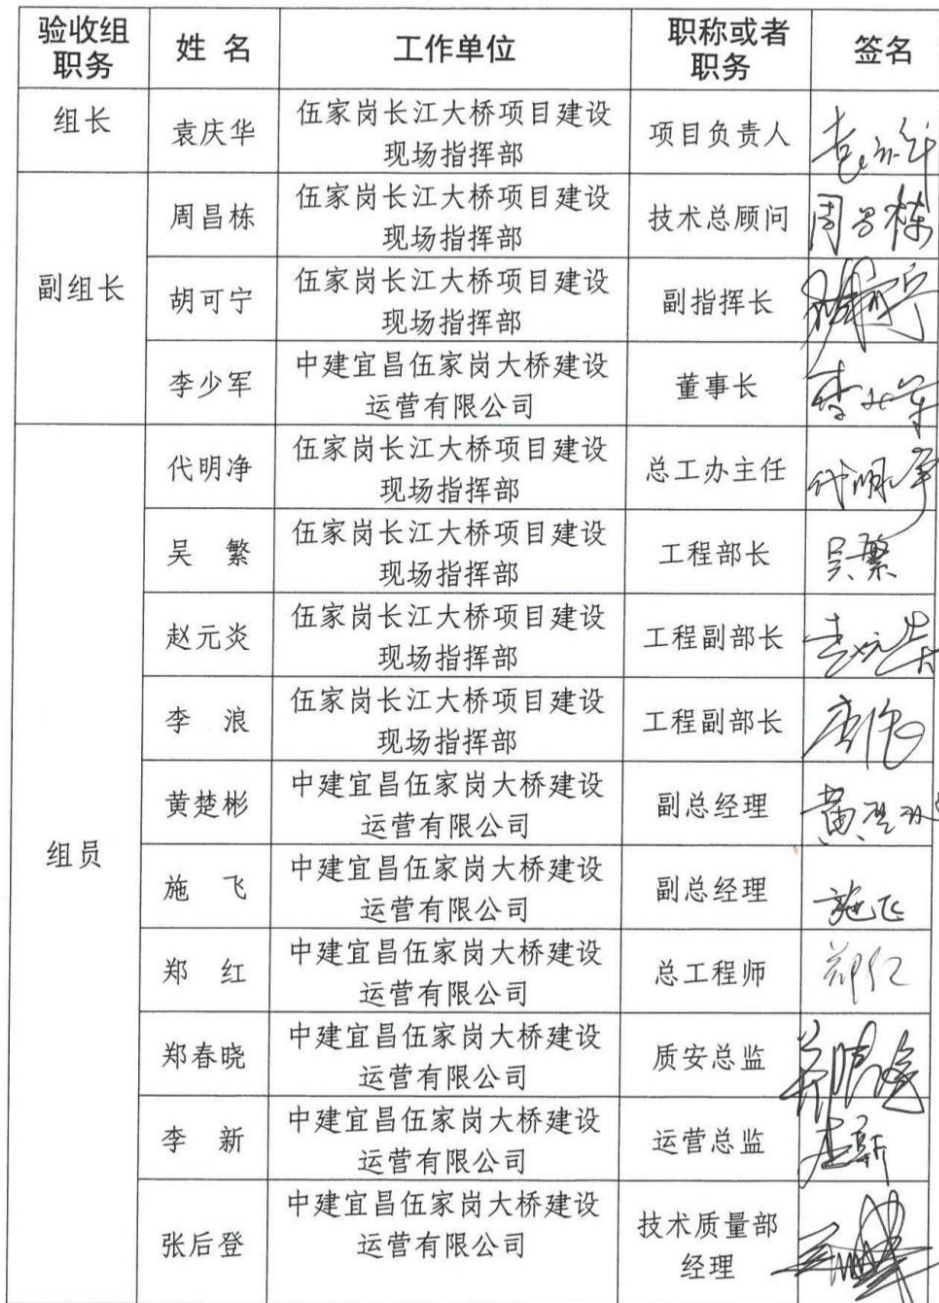 验收组职务 姓 名 工作单位 职称或者职务 签名
组长 袁庆华 伍家岗长江大桥项目建设现场指挥部 项目负责人
副组长 周昌栋 伍家岗长江大桥项目建设现场指挥部 技术总顾问 周昌栋
胡可宁 伍家岗长江大桥项目建设现场指挥部 副指挥长
李少军 中建宜昌伍家岗大桥建设运营有限公司 董事长
组员 代明净 伍家岗长江大桥项目建设现场指挥部 总工办主任 代明净
吴 繁 伍家岗长江大桥项目建设现场指挥部 工程部长 吴繁
赵元炎 伍家岗长江大桥项目建设现场指挥部 工程副部长
李 浪 伍家岗长江大桥项目建设现场指挥部 工程副部长
黄楚彬 中建宜昌伍家岗大桥建设运营有限公司 副总经理 黄楚彬
施 飞 中建宜昌伍家岗大桥建设运营有限公司 副总经理 施飞
郑 红 中建宜昌伍家岗大桥建设运营有限公司 总工程师 郑红
郑春晓 中建宜昌伍家岗大桥建设运营有限公司 质安总监
李 新 中建宜昌伍家岗大桥建设运营有限公司 运营总监 李新
张后登 中建宜昌伍家岗大桥建设运营有限公司 技术质量部经理